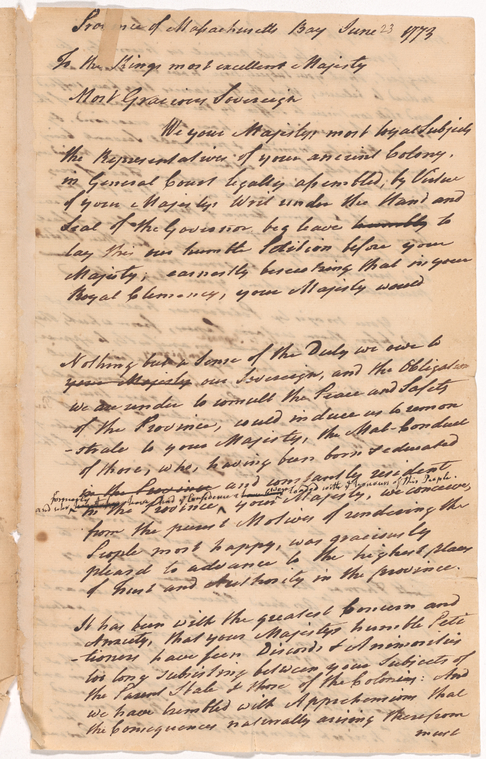 Province of Massachusetts Bay June 23 1773
To the Kings most excellent Majesty
Most Gracious Sovereign
We your Majestys most loyal Subjects
the Representatives of your ancient Colony,
in General Court legally assembled, by Virtue
of your Majestys Writ under the Hand and
Seal of the Governor, beg leave humbly to
lay this our humble Petition before your
Majesty; earnestly beseeching that in your
Royal Clemency, your Majesty would
Nothing but a Sense of the Duty we owe to
your Majesty our Sovereign, and the Obligation
we are under to consult the Peace and Safety
of the Province, could induce us to remon
-strate to your Majesty, the Mal-Conduct
of those, who, having been born & educated
in the Province and constantly resident
formerly
and who have had ye Confidence & were loaded with ye honours of this People
in the Province, your Majesty, we conceive,
from the purest Motives of rendering the
People most happy, was graciously
pleasd to advance to the highest places
of trust and Authority in the province.
It has been with the greatest Concern and
Anxiety, that your Majestys humble Peti
tioners have seen Discords & Animosities
too long subsisting between your Subjects of
the Parent State & those of the Colonies: And
we have trembled with Apprehensions that
the Consequences naturally arising therefrom
must